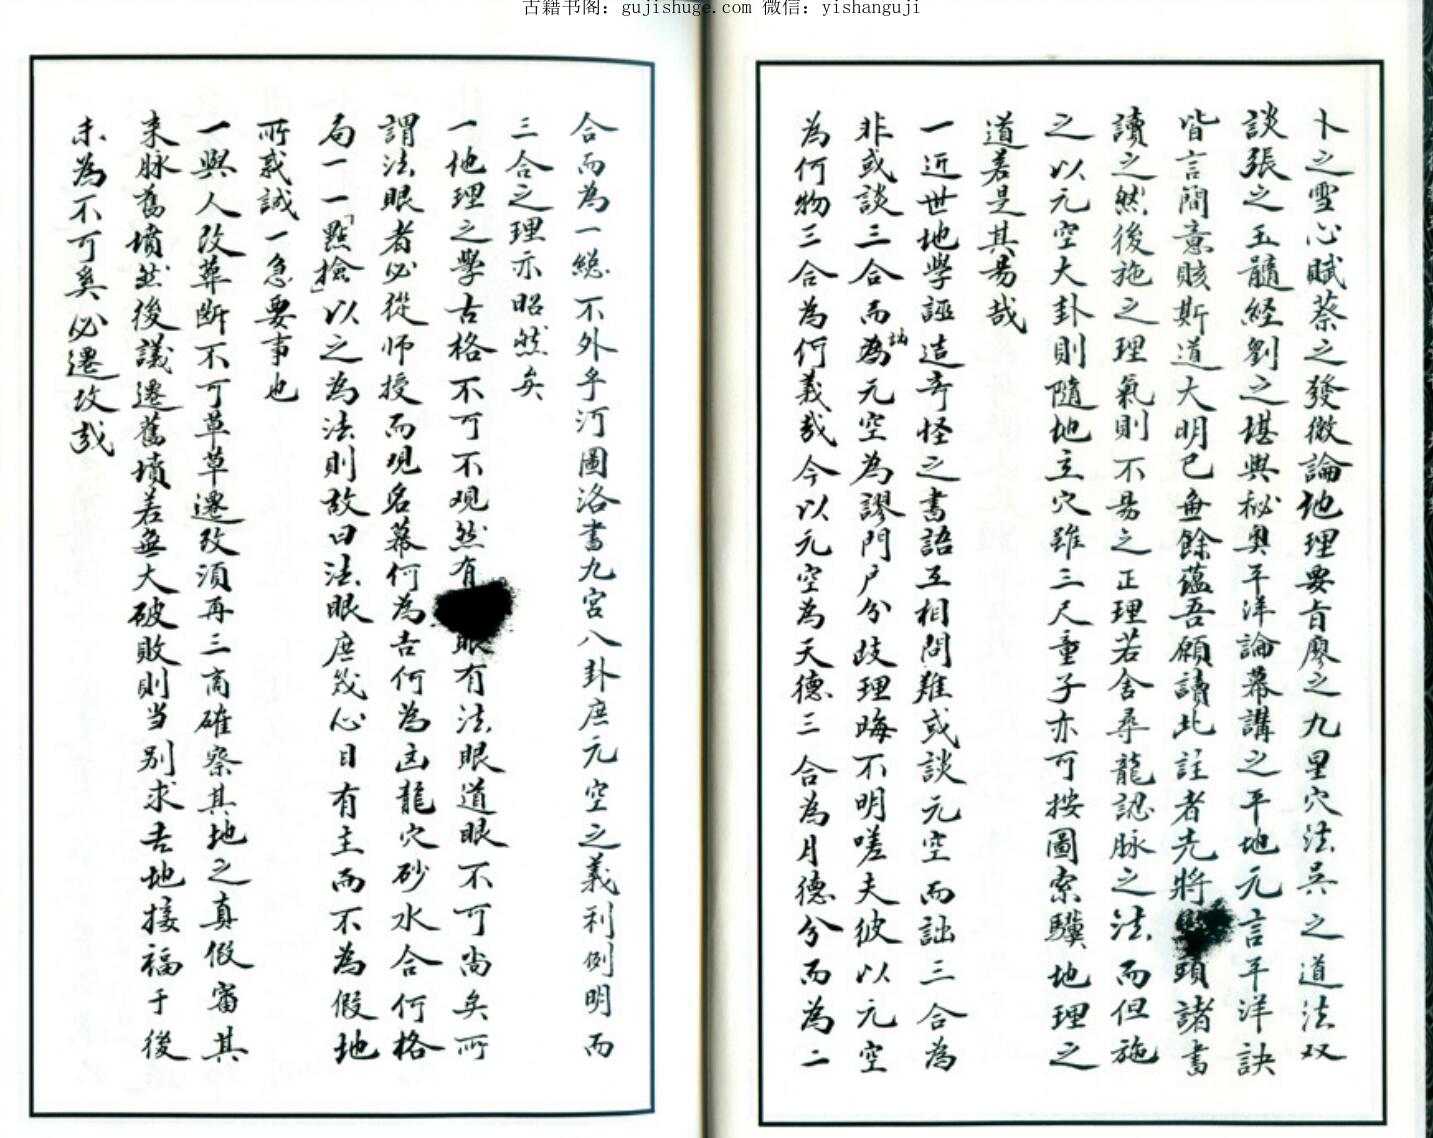 古籍书阁：gujishuge.com 微信：yishanguji
卜之雪心賦蔡之發微論地理要旨廖之九星穴法吳之道法双
談張之玉髓經劉之堪輿秘奧平洋論幕講之平地元言平洋訣
皆言簡意賅斯道大明已無餘蘊吾願讀此註者先將頭諸書
讀之然後施之理氣則不易之正理若舍尋龍認脉之法而但施
之以元空大卦則隨地立穴雖三尺童子亦可按圖索驥地理之
道若是其易哉
一近世地學誣造奇怪之書語互相問難或談元空而詘三合為
非或談三合而詘為元空為謬門戶分歧理晦不明嗟夫彼以元空
為何物三合為何義哉今以元空為天德三合為月德分而為二
合而為一總不外乎河圖洛書九宮八卦庶元空之義利例明而
三合之理亦昭然矣
一地理之學古格不可不观然有眼有法眼道眼不可尚矣所
謂法眼者必從师授而观名幕何為吉何為凶龍穴砂水合何格
局一一「點撿」以之為法則故曰法眼庶幾心目有主而不為假地
所惑誠一急要事也
一與人改葬断不可草草遷改須再三商確察其地之真假审其
来脉舊墳然後議遷舊墳若無大破敗則当别求吉地接福于後
未為不可奚必遷改哉